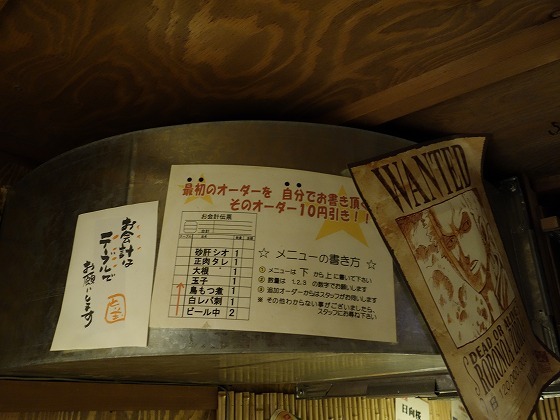 お会計は
テーブルで
お願いします
最初のオーダーを 自分でお書き頂く
そのオーダー10円引き！！
お会計伝票
砂肝シオ 1
正肉タレ 1
大根 1
玉子 1
鳥もつ煮 1
白レバ刺 1
ビール中 2
☆ メニューの書き方 ☆
① メニューは 下 から 上 に書いて下さい
② 数量は 1,2,3 の数字でお願いします
③ 追加オーダーからはスタッフがお伺いします
※ その他わからない事がございましたら、
スタッフにお尋ね下さい
WANTED
DEAD OR
RORONOA
日向燻